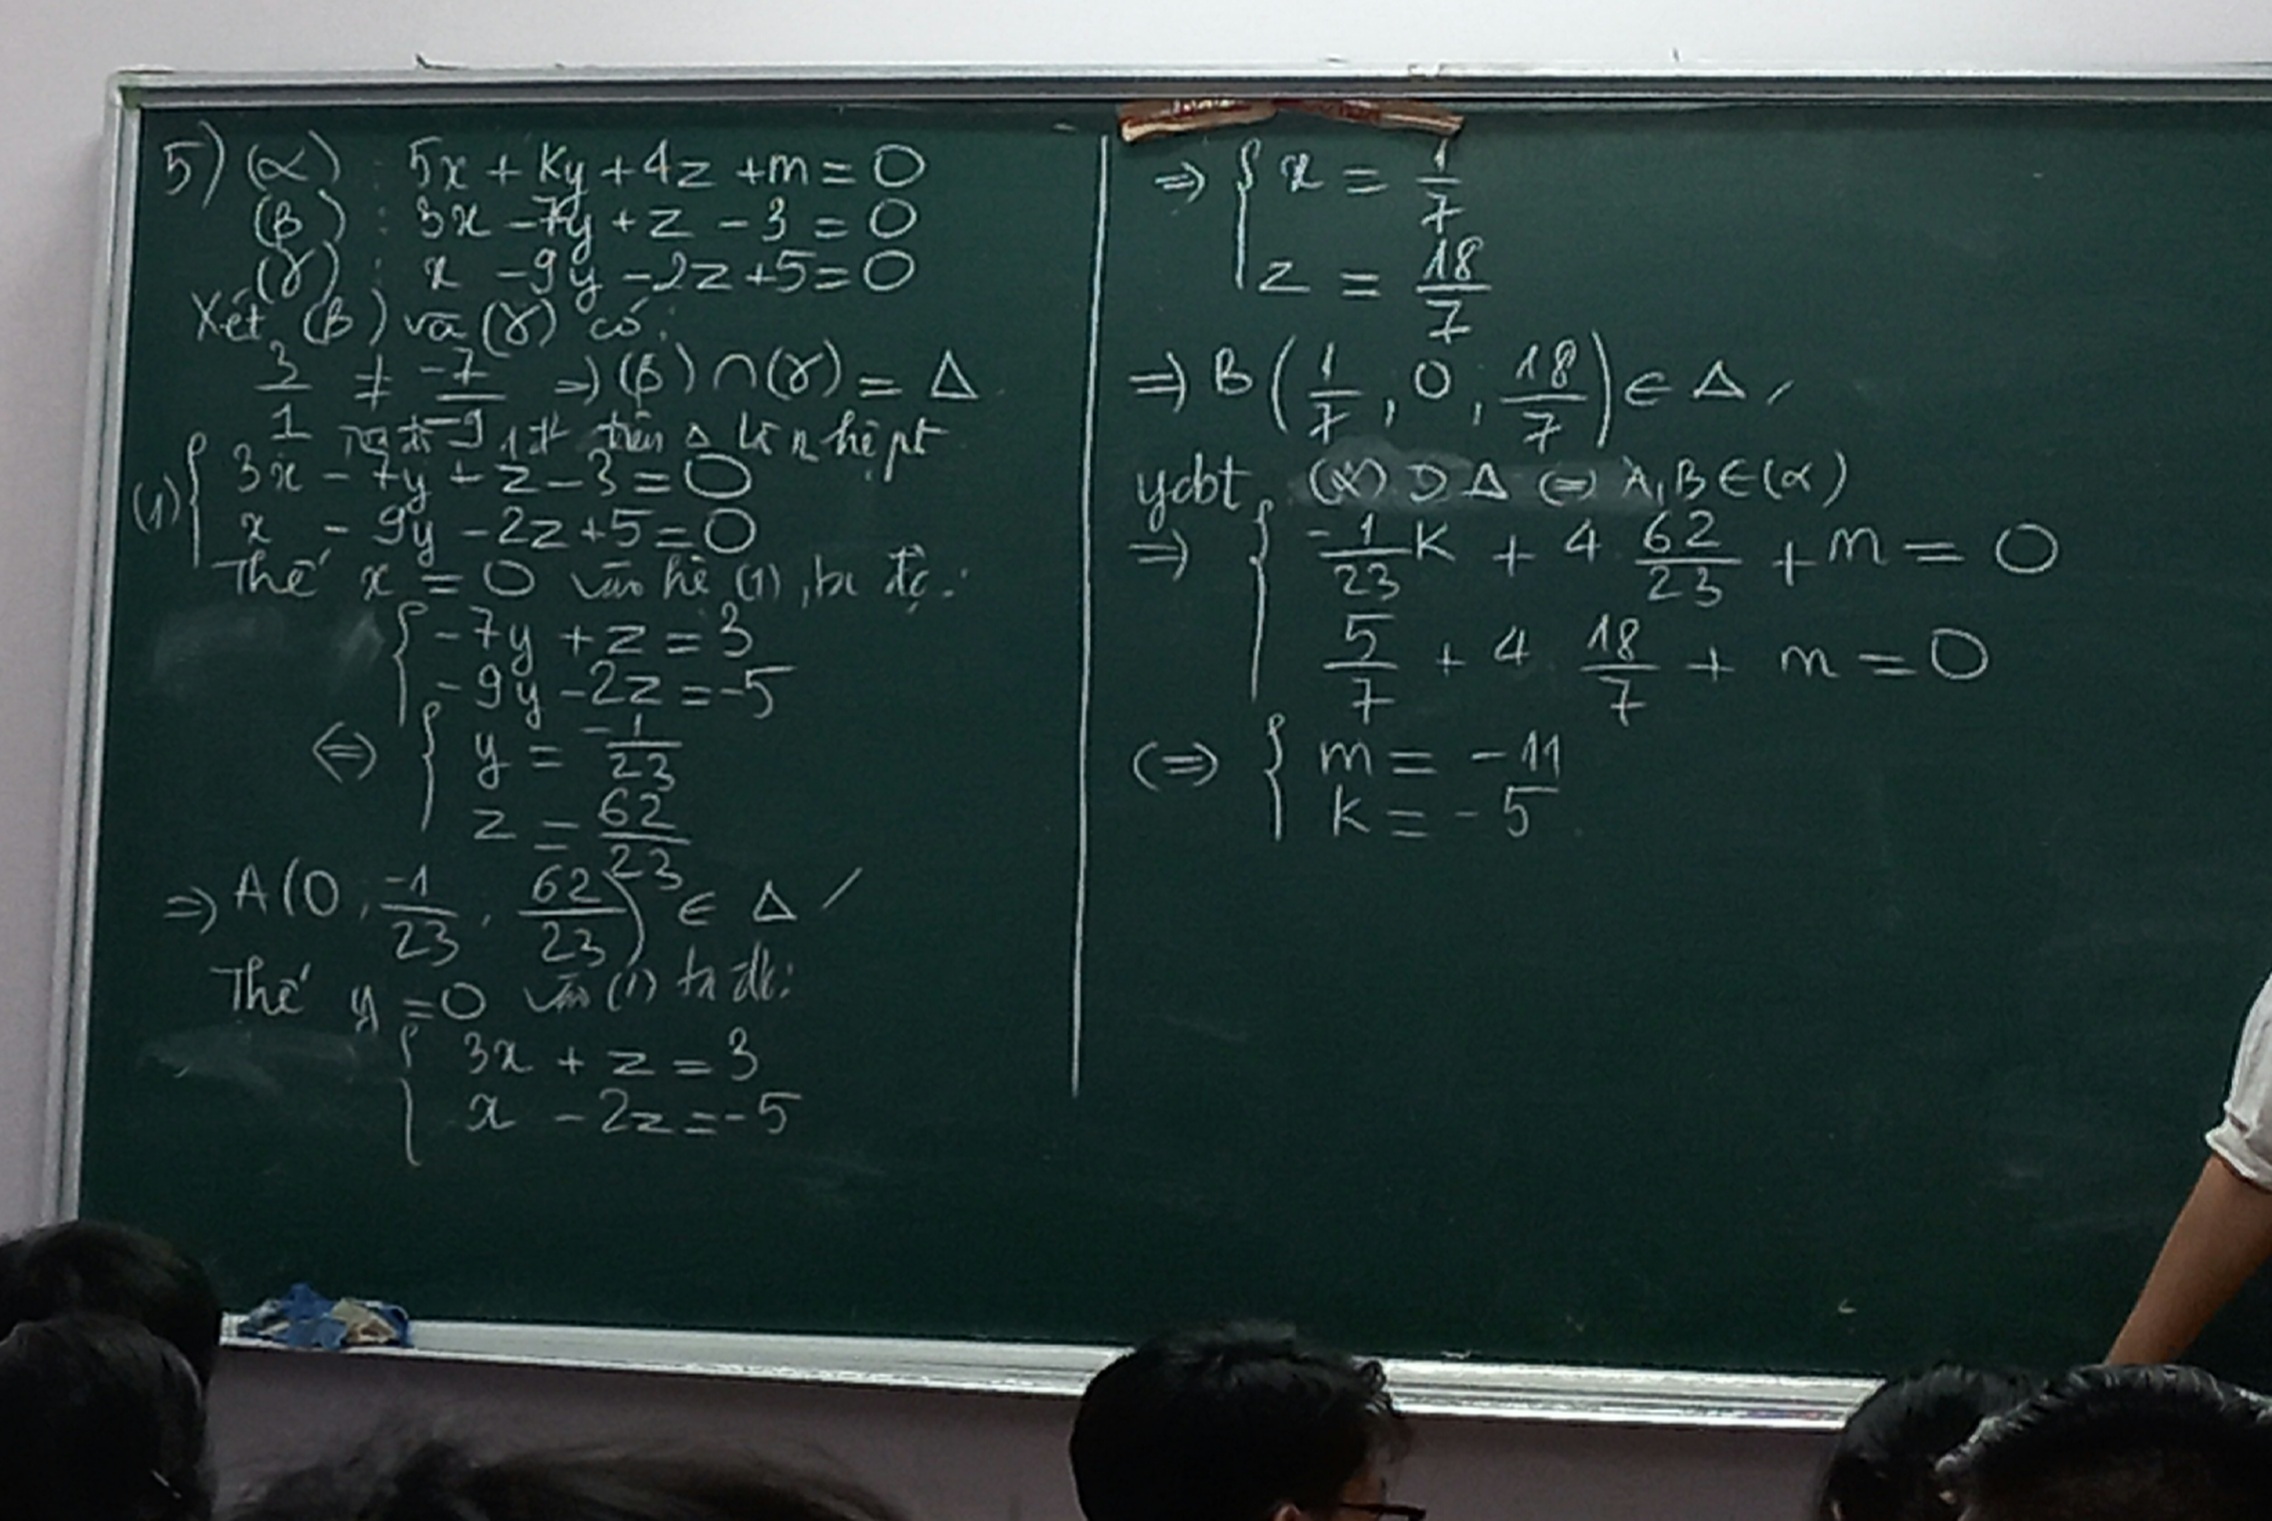 5) (α) : 5x + Ky + 4z + m = 0
(β) : 3x - 7y + z - 3 = 0
(γ) : x - 9y - 2z + 5 = 0
Xét (β) và (γ) có:
3/1 ≠ -7/-9 => (β) ∩ (γ) = Δ
1 trên Δ là n hệ pt
(1) { 3x - 7y + z - 3 = 0
x - 9y - 2z + 5 = 0
Thế x = 0 vào hệ (1), ta đc:
{ -7y + z = 3
-9y - 2z = -5
<=> { y = -1/23
z = 62/23
=> A(0, -1/23, 62/23) ∈ Δ
Thế y = 0 vào (1) ta đc:
{ 3x + z = 3
x - 2z = -5
=> { x = 1/7
z = 18/7
=> B(1/7, 0, 18/7) ∈ Δ
ycbt (α) ⊃ Δ <=> A, B ∈ (α)
=> { -1/23 K + 4 62/23 + m = 0
5/7 + 4 18/7 + m = 0
<=> { m = -11
k = -5